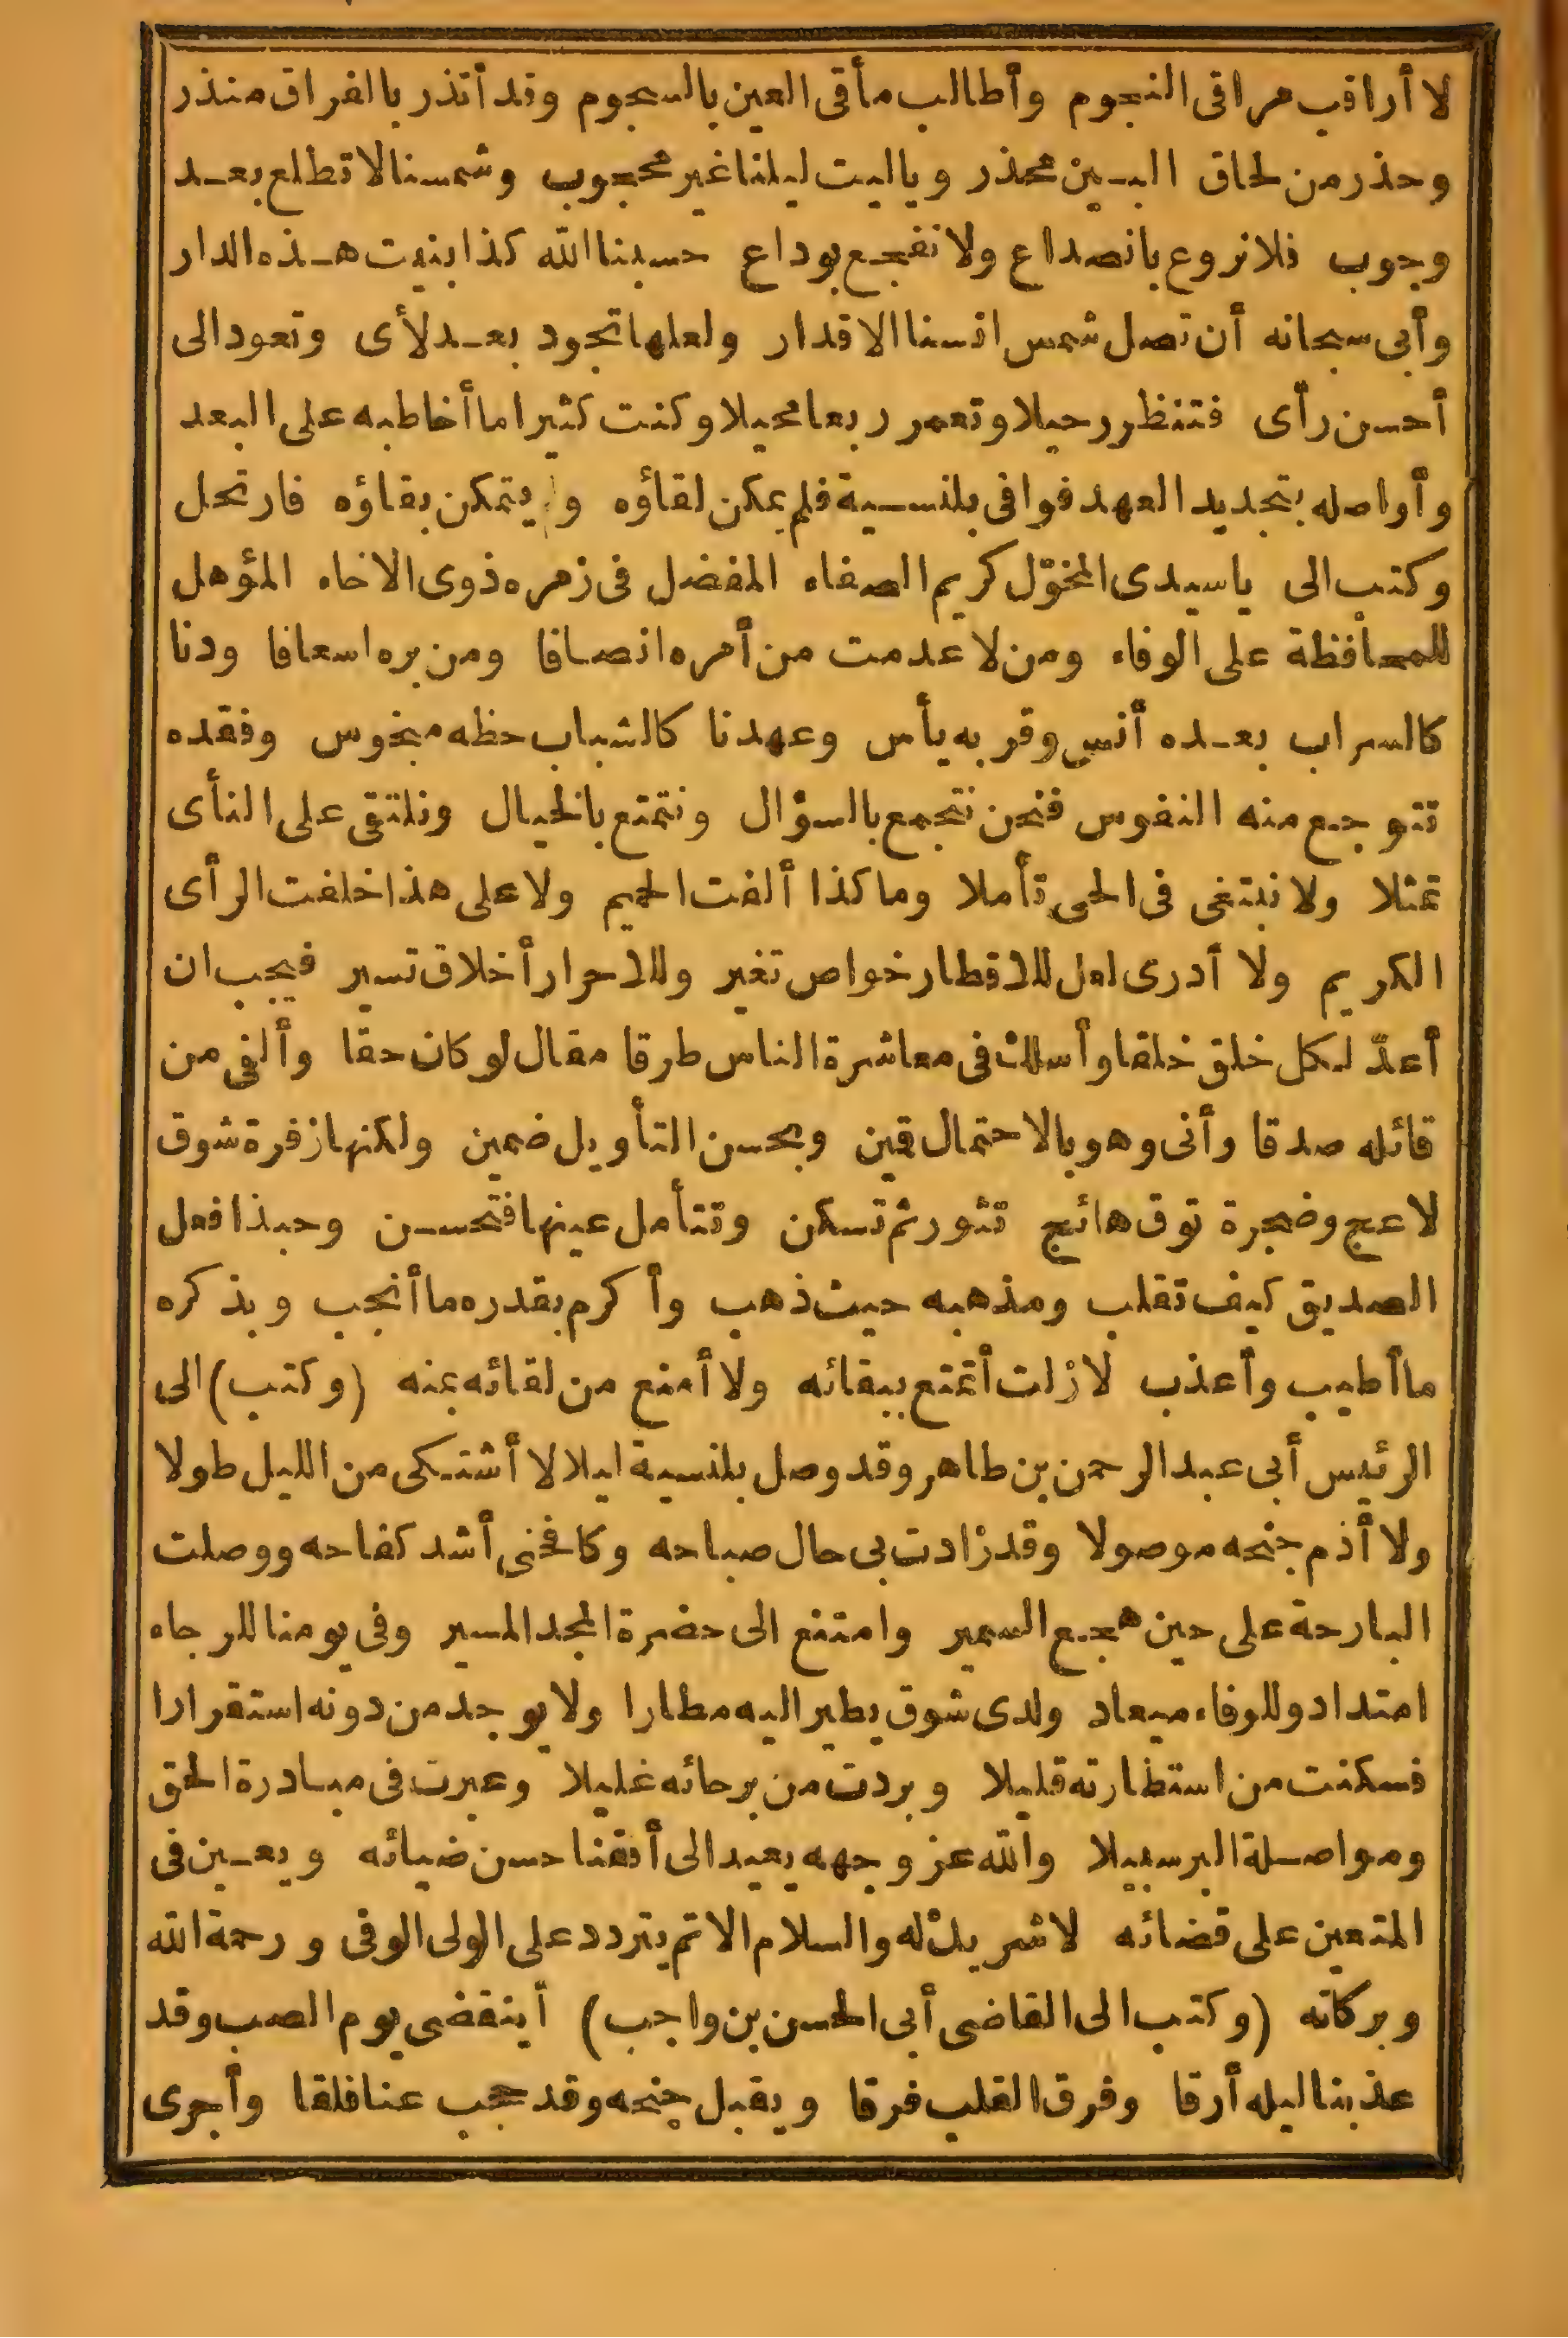 لا أراقب مراقى النجوم وأطالب مأقى العين بالسجوم وقد أنذر بالفراق منذر
وحذر من لحاق البين محذر وياليت ليلنا غير محجوب وشمسنا لا تطلع بعد
وجوب فلا نروع بانصداع ولا نفجع بوداع حسبنا الله كذا بنيت هذه الدار
وأبى سبحانه أن تصل شمس انسنا الاقدار ولعلها تجود بعد لأى وتعود الى
أحسن رأى فتنظر رحيلا وتعمر ربعا محيلا وكنت كثيرا ما أخاطبه على البعد
وأواصله بتجديد العهد فوافى بلنسية فلم يمكن لقاؤه و يتمكن بقاؤه فارتحل
وكتب الى ياسيدى المخوّل كريم الصفاء المفضل فى زمره ذوى الاخاء المؤهل
للمحافظة على الوفاء ومن لا عدمت من أمره انصافا ومن بره اسعافا ودنا
كالسراب بعده أنس وقربه يأس وعهدنا كالشباب حظه مبخوس وفقده
تتوجع منه النفوس فنحن نتجمع بالسؤال ونتمتع بالخيال ونلتقى على النأى
تمثلا ولا نبتغى فى الحى تأملا وما كذا ألفت الحيم ولا على هذا خلفت الرأى
الكريم ولا أدرى لعل للاقطار خواص تغير وللاحرار أخلاق تسير فيجب ان
أعدّ لكل خلق خلقا وأسلك فى معاشرة الناس طرقا مقال لو كان حقا وألفى من
قائله صدقا وأنى وهو بالاحتمال قمين وبحسن التأويل ضمين ولكنها زفرة شوق
لاعج وضجرة توق هائج تثور ثم تسكن وتتأمل عينها فتحسن وحبذا فعل
الصديق كيف تقلب ومذهبه حيث ذهب وأكرم بقدره ما أنجب وبذكره
ما أطيب وأعذب لا زلت أتمتع ببقائه ولا أمنع من لقائه بمنه (وكتب) الى
الرئيس أبى عبد الرحمن بن طاهر وقد وصل بلنسية ليلا لا أشتكى من الليل طولا
ولا أذم جنحه موصولا وقد زادت بى حال صباحه وكافحنى أشد كفاحه ووصلت
البارحة على حين هجع السمير وامتنع الى حضرة المجد المسير وفى يومنا للرجاء
امتداد وللوفاء ميعاد ولدى شوق يطير اليه مطارا ولا يوجد من دونه استقرارا
فسكنت من استطارته قليلا وبردت من برحائه غليلا وعبرت فى مبادرة الحق
ومواصلة البر سبيلا والله عز وجهه يعيد الى أفقنا حسن ضيائه ويعين فى
المتعين على قضائه لا شريك له والسلام الاتم يتردد على الولى الوفى ورحمة الله
وبركاته (وكتب الى القاضى أبى الحسن بن واجب) أينقضى يوم الصب وقد
عذبنا ليله أرقا وفرق القلب فرقا ويقبل جنحه وقد حجب عنا فلقا وأجرى